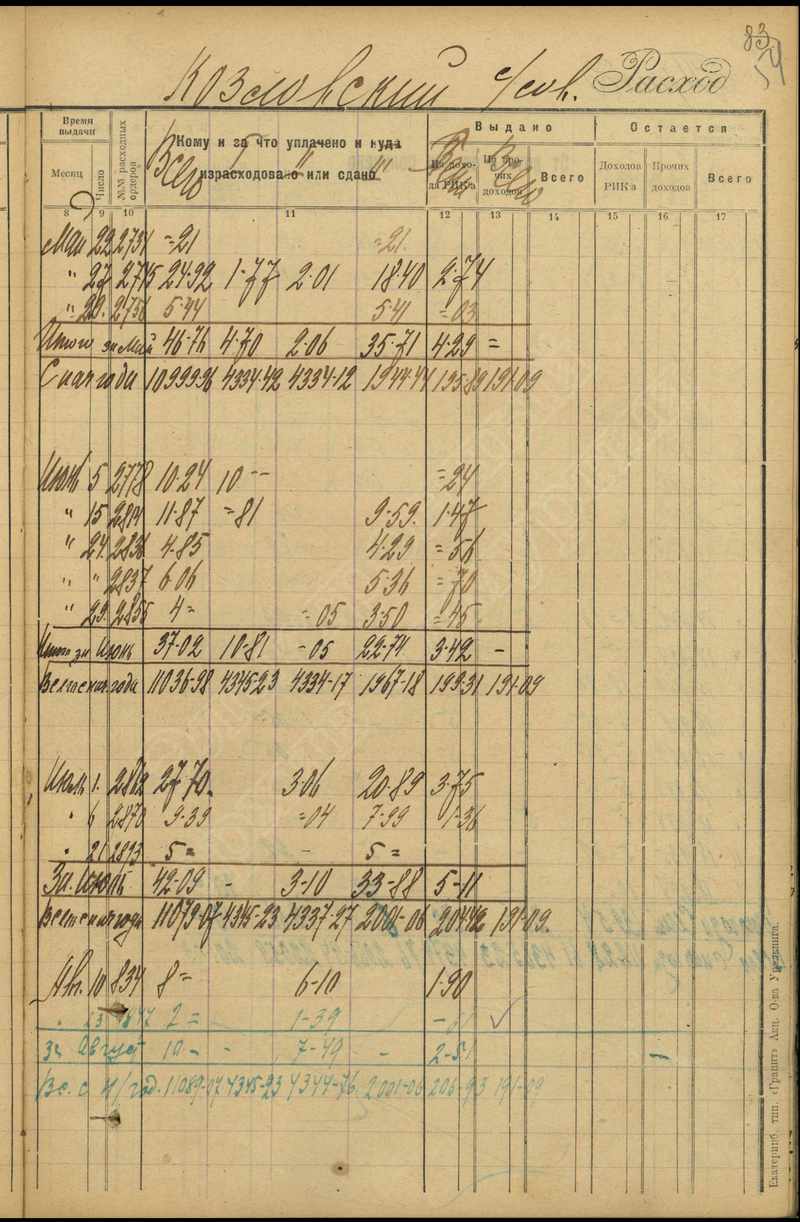 83
54
Козловский с/сов. Расход
Время выдачи №№ расходных ордеров Кому и за что уплачено и куда израсходовано или сдано Выдано Остается
Месяц Число Из дохода РИК'а Из прочих доходов Всего Доходов РИК'а Прочих доходов Всего
Всего " " Всего
8 9 10 11 12 13 14 15 16 17
Май 22 2731 =21 =21
" 27 2745 24-92 1-77 2-01 18-40 2-74
" 29. 2756 5-44 5-41 =03
Итого за Май 46-76 4-70 2-06 35-71 4-29 =
С нач года 10999-96 4334-42 4334-12 1944-44 195-89 191-09
Июнь 5 2778 10-24 10 -- =24
" 15 2814 11-87 =81 9-59. 1-47
" 24. 2836 4-85 4-29 =56
" " 2837 6-06 5-36 =70
" 29. 2855 4= =05 3-50 =45
Итого за Июнь 37-02 10-81 -05 22-74 3-42 -
Всего с нач года 11036-98 4345-23 4334-17 1967-18 199-31 191-09
Июль 1. 2862 27-70. 3-06 20-89 3-75
" 6 2870 9-39 =04 7-99 1-36
" 21 2893 5= - 5=
За Июль 42-09 - 3-10 33-88 5-11
Всего с нач года 11079-07 4345-23 4337-27 2001-06 204-42 191-09.
Авг. 10 834 8= 6-10 1-90
" 2= 1-39 -61 ✓
за Август 10- - 7-49 - 2-51 -
Вс. с н/год. 11089-07 4345-23 4344-76. 2001-06 206-93 191-09
Екатеринб. тип. «Гранит» Акц. О-ва Уралкнига.